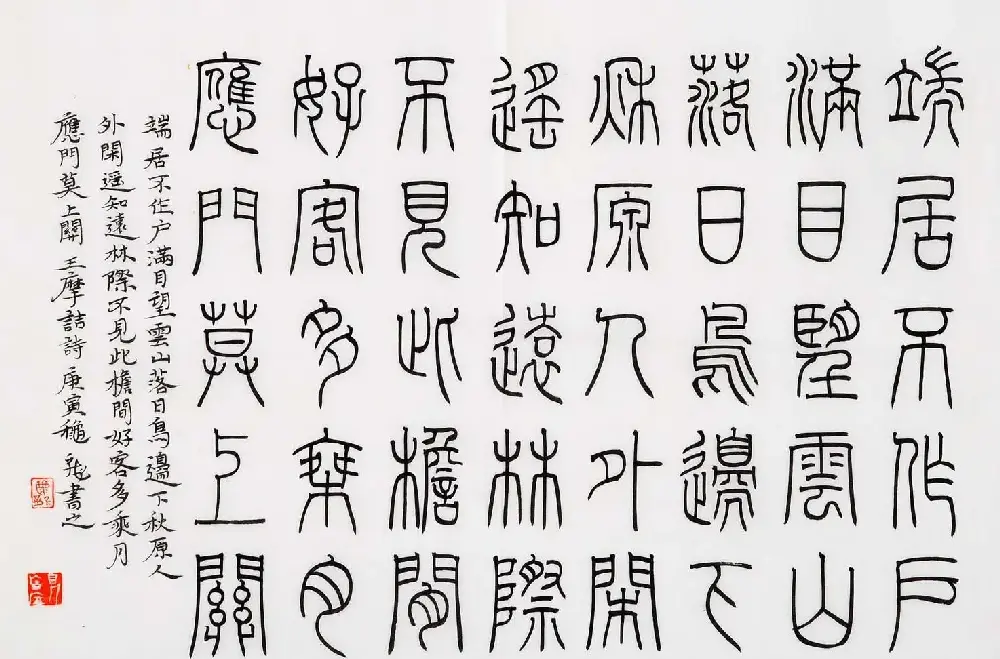 端居不作戶
滿目望雲山
落日鳥邊下
秋原人外閑
遙知遠林際
不見此檐間
好客多乘月
應門莫上關
端居不作户滿目望雲山落日鳥邊下秋原人
外閑遥知遠林際不見此檐間好客多乘月
應門莫上關 王摩詰詩 庚寅龝 書之